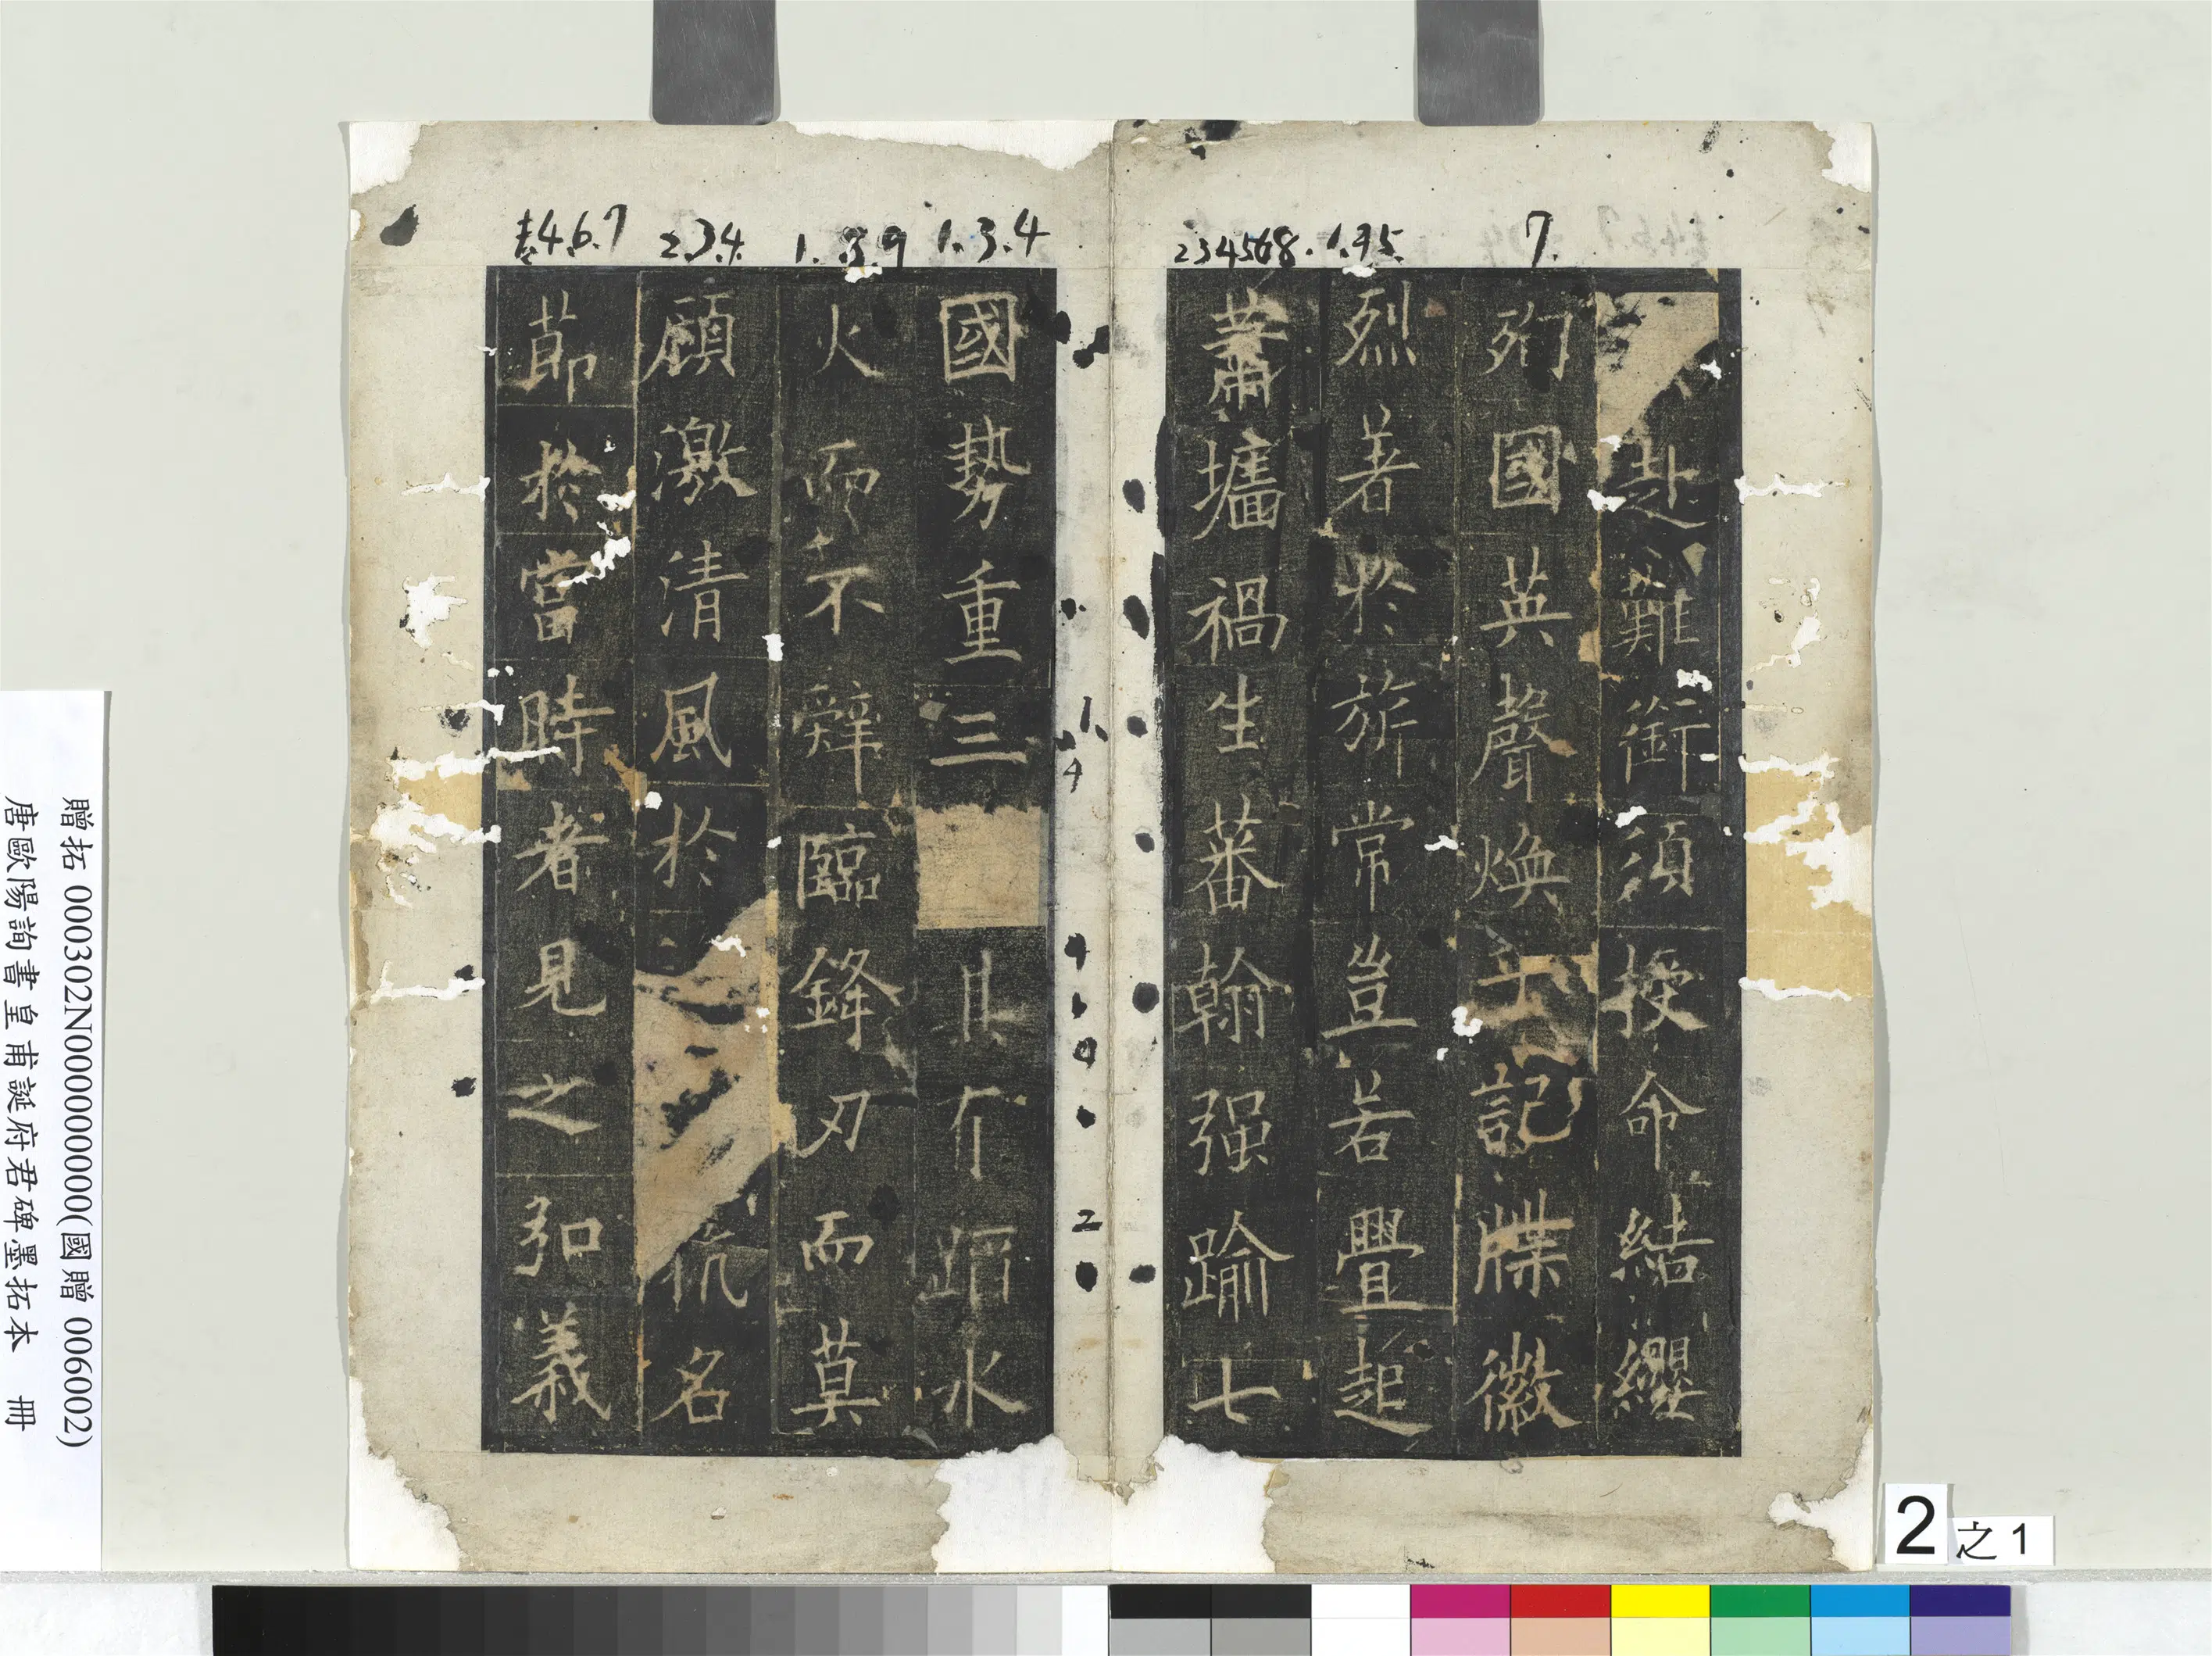 7.
234568.
1.3.4
2.3.4.
4.6.7
赴難銜須授命結纓
殉國英聲煥乎記牒徽
烈著於旂常豈若釁起
蕭墻禍生蕃翰强踰七
國勢重三其有蹈水
火而不辭臨鋒刃而莫
顧激清風於抗名
節於當時者見之弘義
贈拓 000302N000000000(國贈 006002)
唐歐陽詢書皇甫誕府君碑墨拓本 冊
2之1